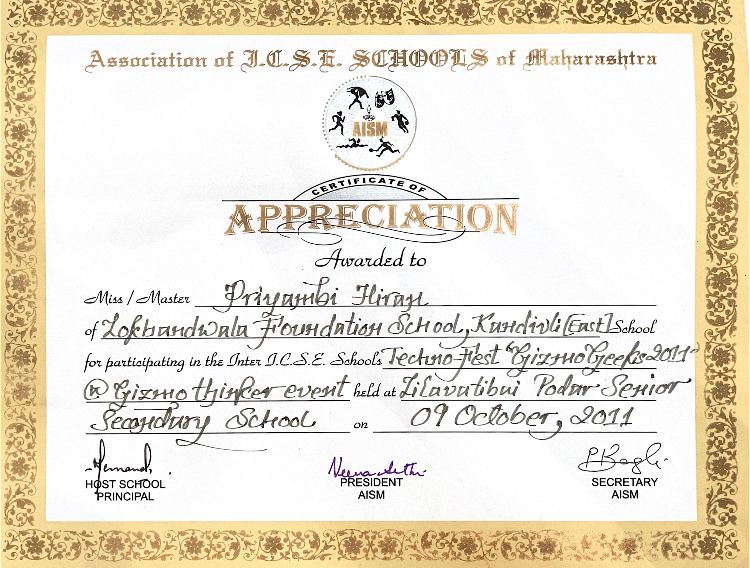 Association of I.C.S.E. SCHOOLS of Maharashtra
AISM
CERTIFICATE OF
APPRECIATION
Awarded to
Miss / Master Priyambi Hiran
of Lokhandwala Foundation School, Kandivli [East] School
for participating in the Inter I.C.S.E. Schools Techno-Fest "GizmoGeeks 2011"
in Gizmo thinker event held at Lilavatibai Podar Senior
Secondary School on 09 October, 2011
HOST SCHOOL PRESIDENT SECRETARY
PRINCIPAL AISM AISM